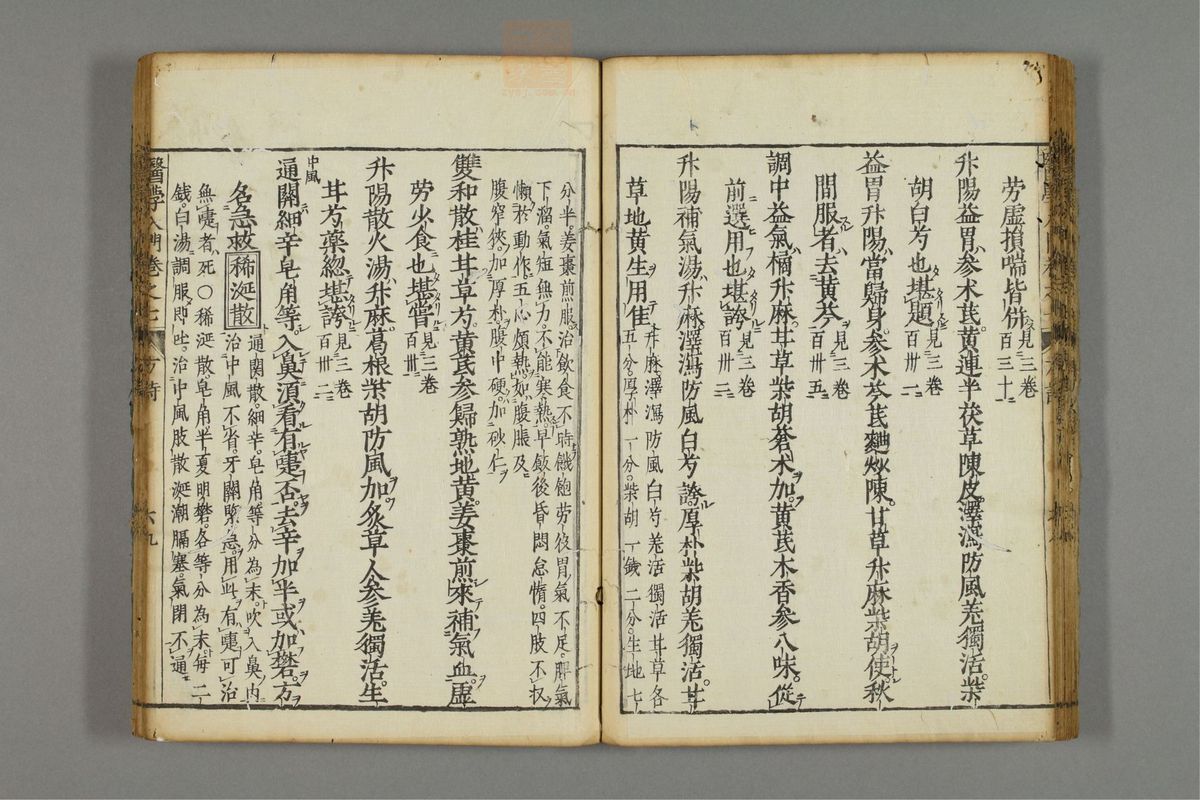 勞虛損喘皆併 見三卷百三十二
升陽益胃參朮芪黃連半茯草陳皮澤瀉防風羌獨活柴
胡白芍也堪題 見三卷百卅二
益胃升陽當歸身參朮芩芪麯炒陳甘草升麻柴胡使秋
間服者去黃芩 見三卷百卅五
調中益氣橘升麻甘草柴胡蒼朮加黃芪木香參八味從
前選用也堪誇 見三卷百卅二
升陽補氣湯升麻澤瀉防風白芍誇厚朴柴胡羌獨活甘
草地黃生用佳 升麻澤瀉防風白芍羌活獨活甘草各
五分厚朴一分柴胡一錢二分生地七
分半姜棗煎服治飲食不時饑飽勞役胃氣不足脾氣
下溜氣短無力不能寒熱早飯後昏悶怠惰四肢不收
懶於動作五心煩熱如腹脹及
腹窄狹加厚朴腹中硬加砂仁
雙和散桂甘草芍黃芪參歸熟地黃姜棗煎來補氣血虛
勞少食也堪嘗 見三卷百卅二
升陽散火湯升麻葛根柴胡防風加炙草人參羌獨活生
甘芍藥總堪誇 見三卷百卅二
中風
通關細辛皂角等入鼻須看有嚏否去辛加半或加礬方
名急救稀涎散 通關散細辛皂角等分為末吹入鼻內
治中風不省牙關緊急用此有嚏可治
無嚏者死〇稀涎散皂角半夏明礬各等分為末每二
錢白湯調服即吐治中風肢散涎潮膈塞氣閉不通
醫學入門卷之七 方詩 六九